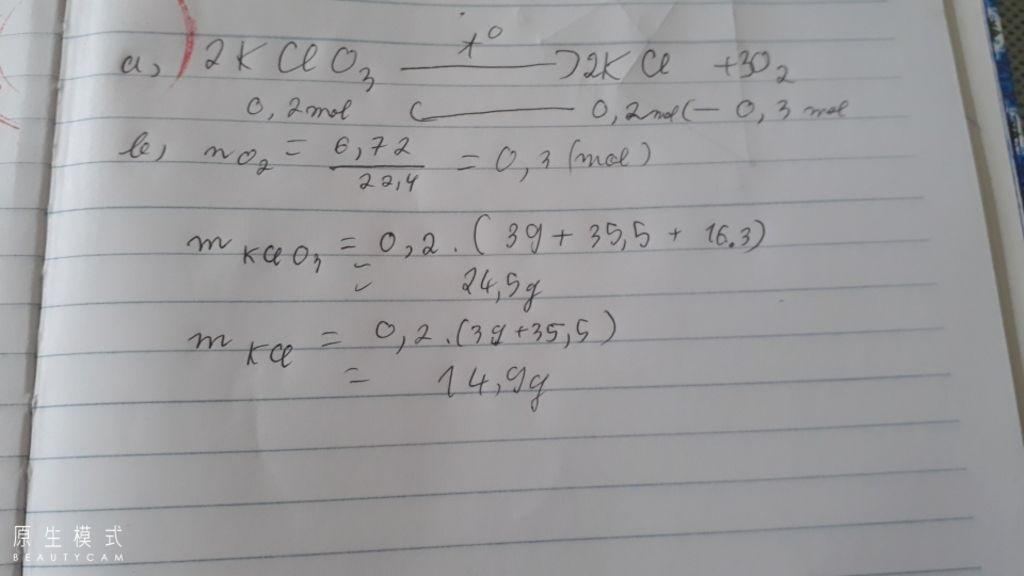 a, 2KClO3 t° → 2KCl + 3O2
0,2mol ← 0,2mol ← 0,3 mol
b, nO2 = 6,72 / 22,4 = 0,3 (mol)
mKClO3 = 0,2 . ( 39 + 35,5 + 16.3)
= 24,5g
mKCl = 0,2 . (39+35,5)
= 14,9g
原生模式
BEAUTYCAM